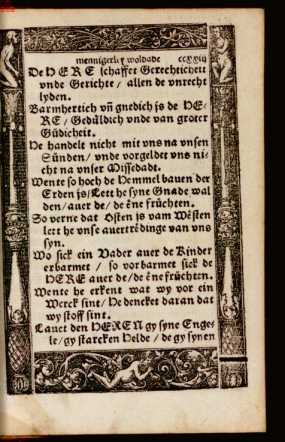 mennigerley woldade ccxxiij
De HERE schaffet Gerechticheit
vnde Gerichte / allen de vnrecht
lyden.
Barmhertich vñ gnedich js de HE-
RE / Gedüldich vnde van groter
Güdicheit.
He handelt nicht mit vns na vnsen
Sünden / vnde vorgeldet vns ni-
cht na vnser Missedadt.
Wente so hoch de Hemmel bauen der
Erden js / Lett he syne Gnade wal
den / auer de / de ene früchten.
So verne dat Osten js vam Westen
lett he vnse auertredinge van vns
syn.
Wo sick ein Vader auer de Kinder
erbarmet / so vorbarmet sick de
HERE auer de / de ene früchten.
Wente he erkent wat wy vor ein
Werck sint / He dencket daran dat
wy stoff sint.
Lauet den HEREN gy syne Enge-
le / gy starcken Helde / de gy synen